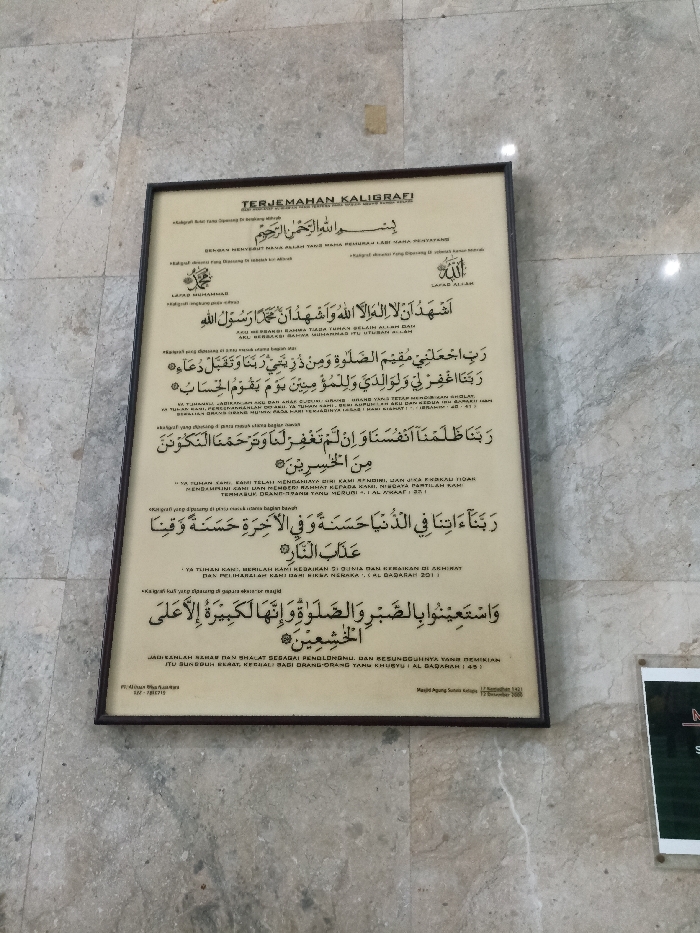 TERJEMAHAN KALIGRAFI
Kaligrafi Bulat Yang Dipasang Di Belakang Mihrab
بِسْمِ اللهِ الرَّحْمٰنِ الرَّحِيْمِ
DENGAN MENYEBUT NAMA ALLAH YANG MAHA PEMURAH LAGI MAHA PENYAYANG
Kaligrafi dimensi Yang Dipasang Di Sebelah kiri Mihrab
Kaligrafi dimensi Yang Dipasang Di Sebelah kanan Mihrab
محمد
الله
LAFAD MUHAMMAD
LAFAD ALLAH
Kaligrafi lengkung pada mihrab
اَشْهَدُ اَنْ لَا اِلٰهَ اِلَّا اللهُ وَاَشْهَدُ اَنَّ مُحَمَّدًا رَسُوْلُ اللهِ
AKU BERSAKSI BAHWA TIADA TUHAN SELAIN ALLAH DAN
AKU BERSAKSI BAHWA MUHAMMAD ITU UTUSAN ALLAH
Kaligrafi yang dipasang di pintu masuk utama bagian atas
رَبِّ اجْعَلْنِيْ مُقِيْمَ الصَّلٰوةِ وَمِنْ ذُرِّيَّتِيْ رَبَّنَا وَتَقَبَّلْ دُعَاءِ
رَبَّنَا اغْفِرْ لِيْ وَلِوَالِدَيَّ وَلِلْمُؤْمِنِيْنَ يَوْمَ يَقُوْمُ الْحِسَابُ
" YA TUHANKU, JADIKANLAH AKU DAN ANAK CUCUKU ORANG - ORANG YANG TETAP MENDIRIKAN SHOLAT,
YA TUHAN KAMI, PERKENANKANLAH DO'AKU. YA TUHAN KAMI, BERI AMPUNLAH AKU DAN KEDUA IBU BAPAKKU DAN
SEKALIAN ORANG-ORANG MUKMIN PADA HARI TERJADINYA HISAB ( HARI KIAMAT ) ". ( IBRAHIM : 40 - 41 )
Kaligrafi yang dipasang di pintu masuk utama bagian bawah
رَبَّنَا ظَلَمْنَا اَنْفُسَنَا وَاِنْ لَمْ تَغْفِرْ لَنَا وَتَرْحَمْنَا لَنَكُوْنَنَّ
مِنَ الْخٰسِرِيْنَ
" YA TUHAN KAMI, KAMI TELAH MENGANIAYA DIRI KAMI SENDIRI, DAN JIKA ENGKAU TIDAK
MENGAMPUNI KAMI DAN MEMBERI RAHMAT KEPADA KAMI, NISCAYA PASTILAH KAMI
TERMASUK ORANG-ORANG YANG MERUGI ". ( AL A'RAAF : 23 )
Kaligrafi yang dipasang di pintu masuk utama bagian bawah
رَبَّنَا ءَاتِنَا فِي الدُّنْيَا حَسَنَةً وَفِي الْاٰخِرَةِ حَسَنَةً وَقِنَا
عَذَابَ النَّارِ
" YA TUHAN KAMI, BERILAH KAMI KEBAIKAN DI DUNIA DAN KEBAIKAN DI AKHIRAT
DAN PELIHARALAH KAMI DARI SIKSA NERAKA ". ( AL BAQARAH 201 )
Kaligrafi kufi yang dipasang di gapura eksterior masjid
وَاسْتَعِيْنُوْا بِالصَّبْرِ وَالصَّلٰوةِ وَاِنَّهَا لَكَبِيْرَةٌ اِلَّا عَلَى
الْخٰشِعِيْنَ
JADIKANLAH SABAR DAN SHALAT SEBAGAI PENOLONGMU. DAN SESUNGGUHNYA YANG DEMIKIAN
ITU SUNGGUH BERAT, KECUALI BAGI ORANG-ORANG YANG KHUSYU ( AL BAQARAH : 45 )
Masjid Agung Sunda Kelapa